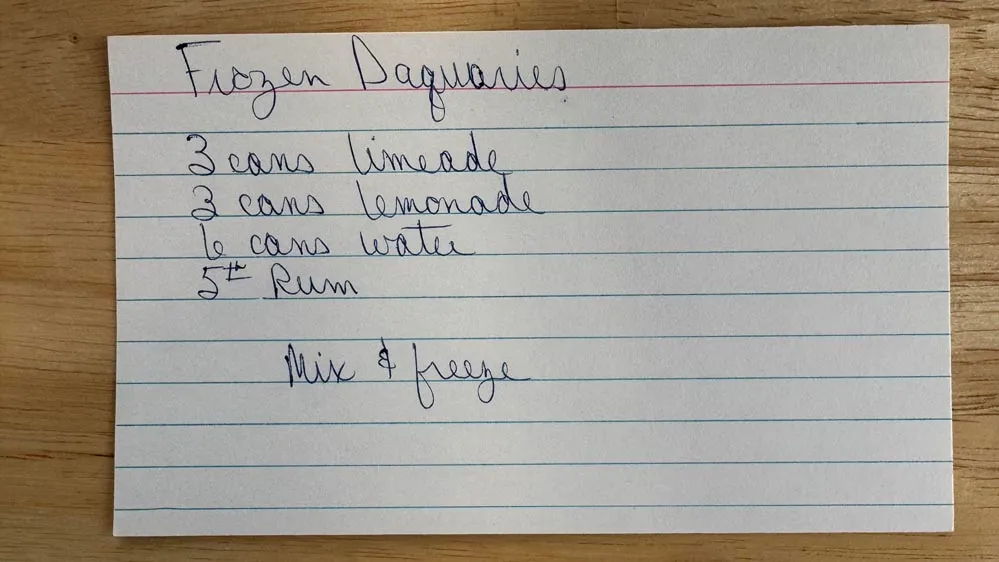 Frozen Daquaries
3 cans limeade
3 cans lemonade
6 cans water
5th Rum
Mix & freeze